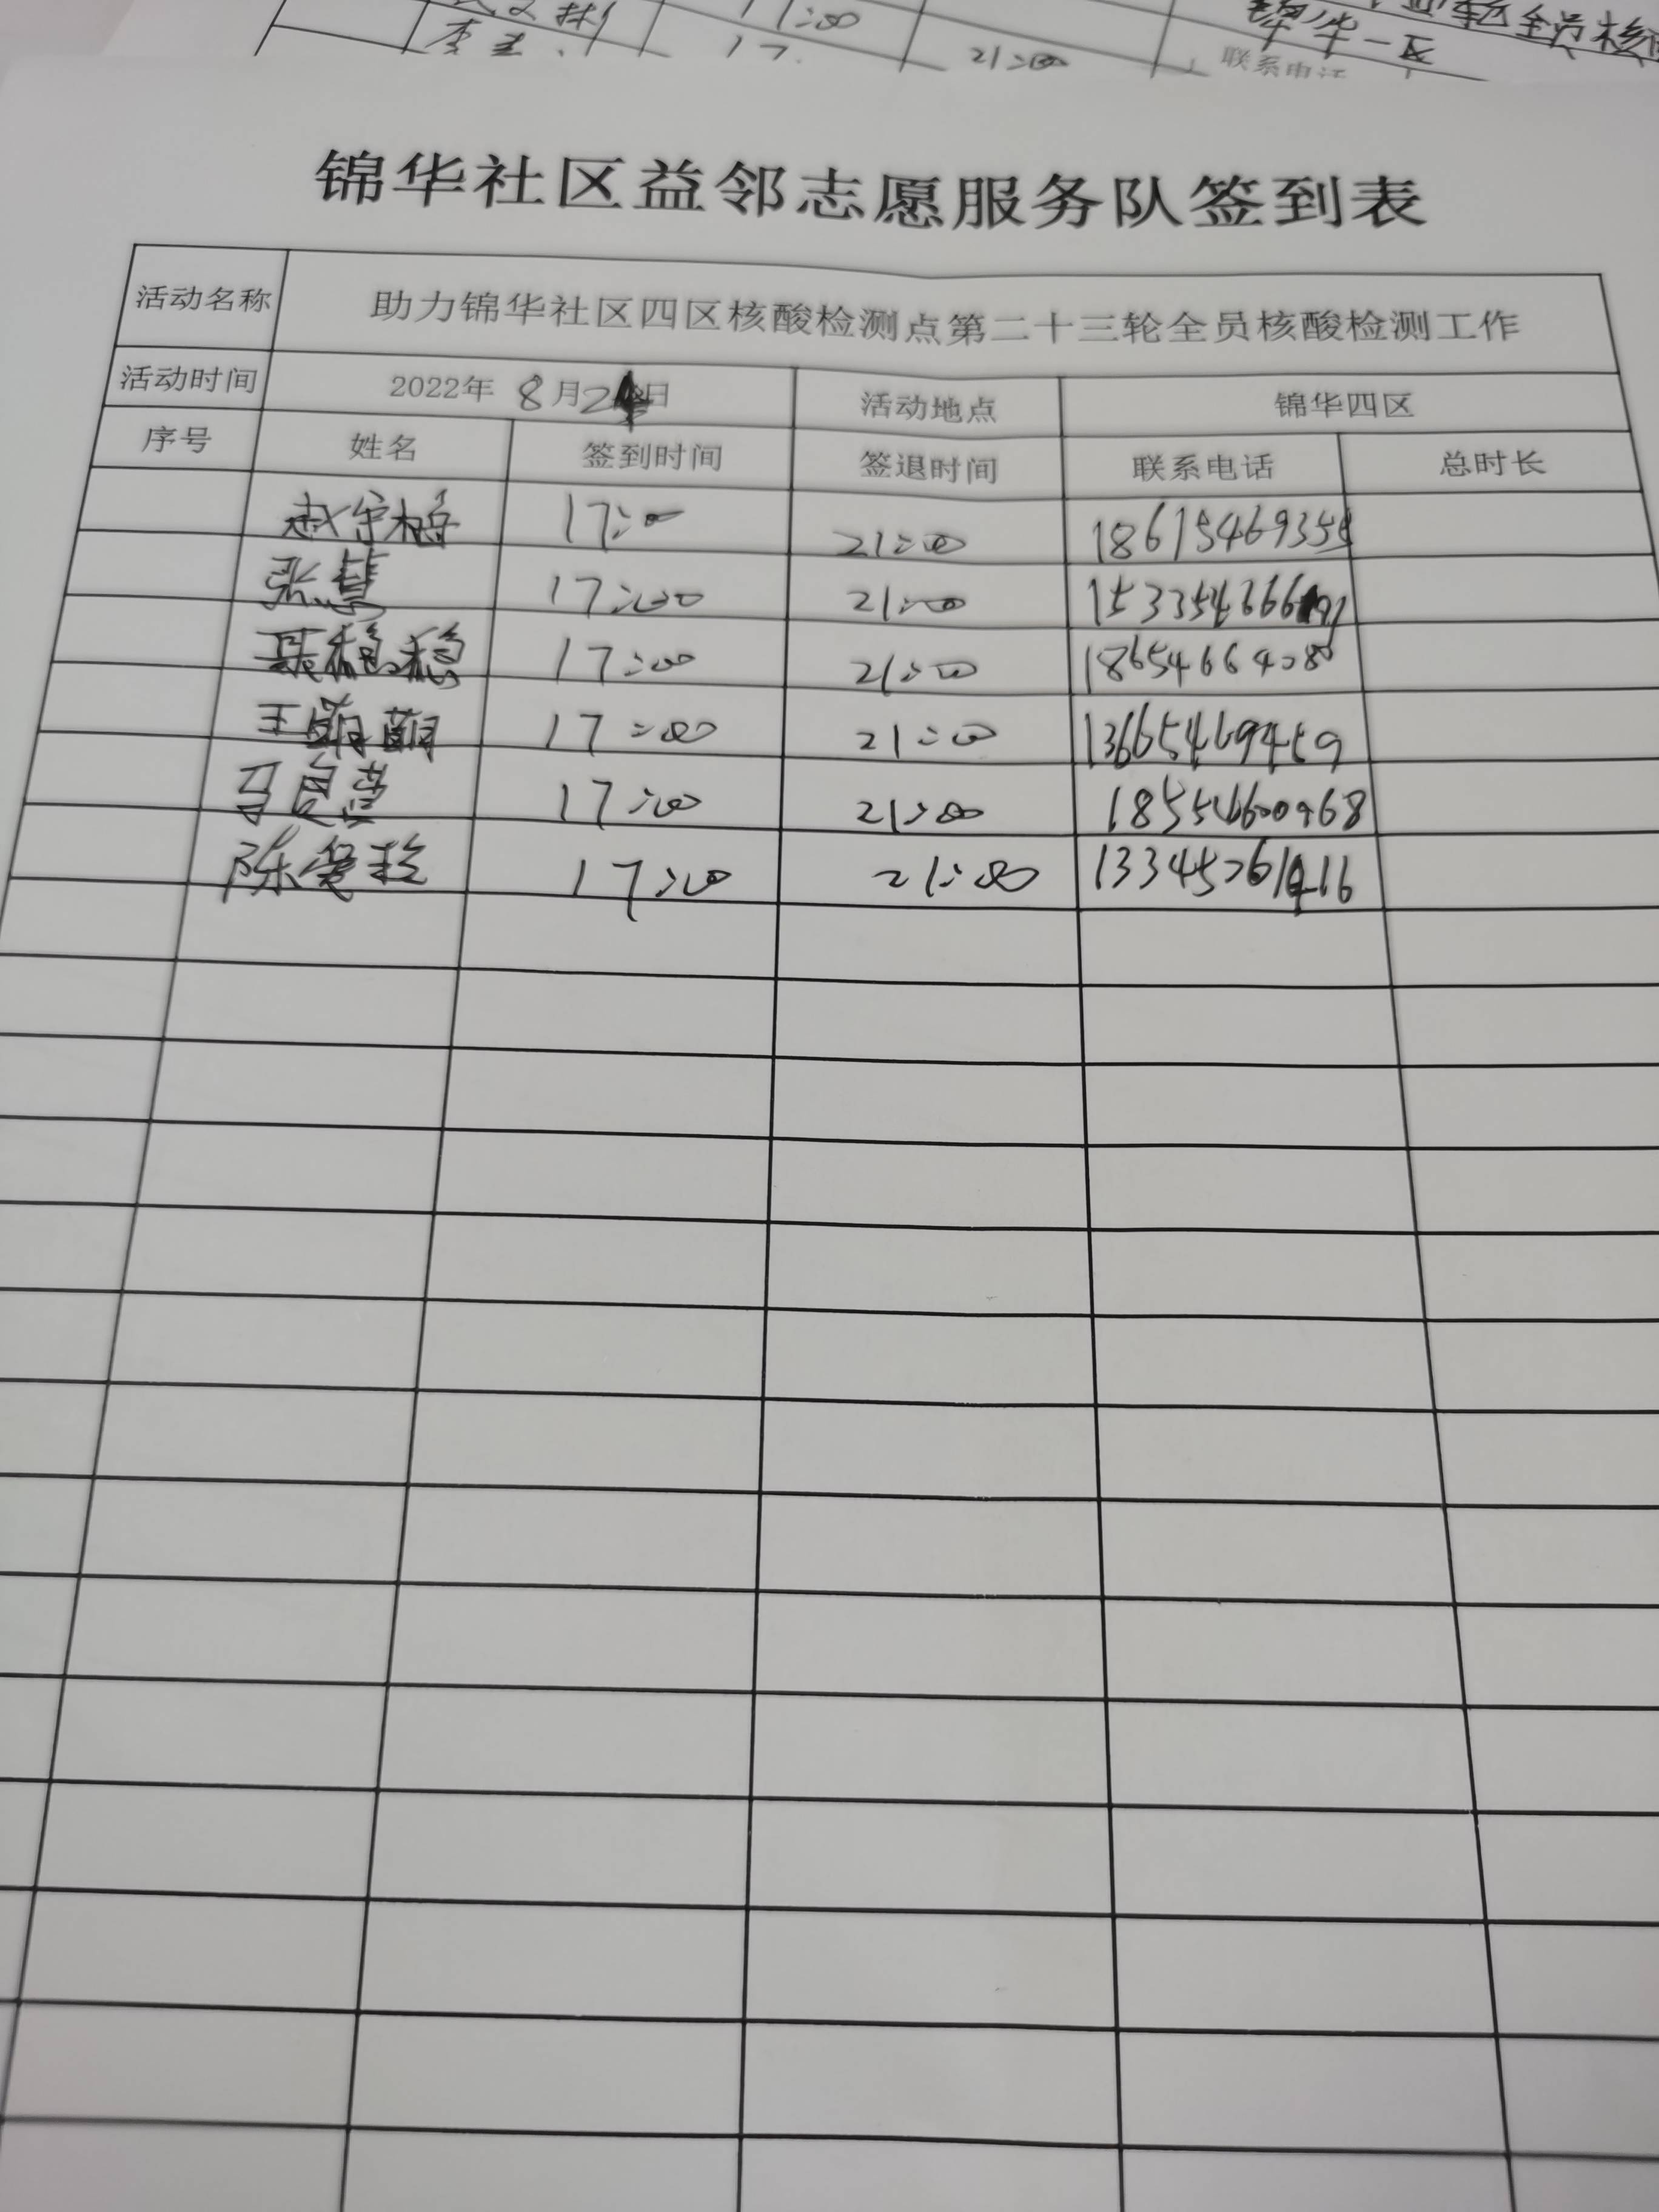 21:00
锦华一区
联系电话
锦华社区益邻志愿服务队签到表
活动名称 助力锦华社区四区核酸检测点第二十三轮全员核酸检测工作
活动时间 2022年 8月24日 活动地点 锦华四区
序号 姓名 签到时间 签退时间 联系电话 总时长
17:00 21:00
张慧 17:00 21:00
聂稳稳 17:00 21:00
王萌萌 17:00 21:00 13665469459
17:00 21:00
陈爱玲 17:00 21:00